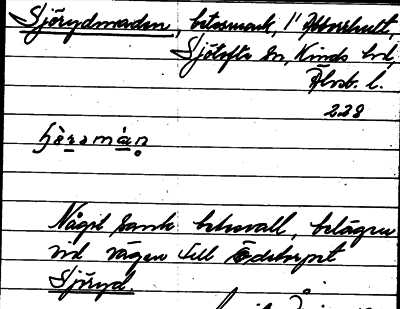 Sjörydmaden, betesmark, 1' Yttershult,
Sjötofta sn, Kinds hd,
Älvsb. l.
228
Något sank betesvall, belägen
vid vägen till Ödetorpet
Sjöryd.